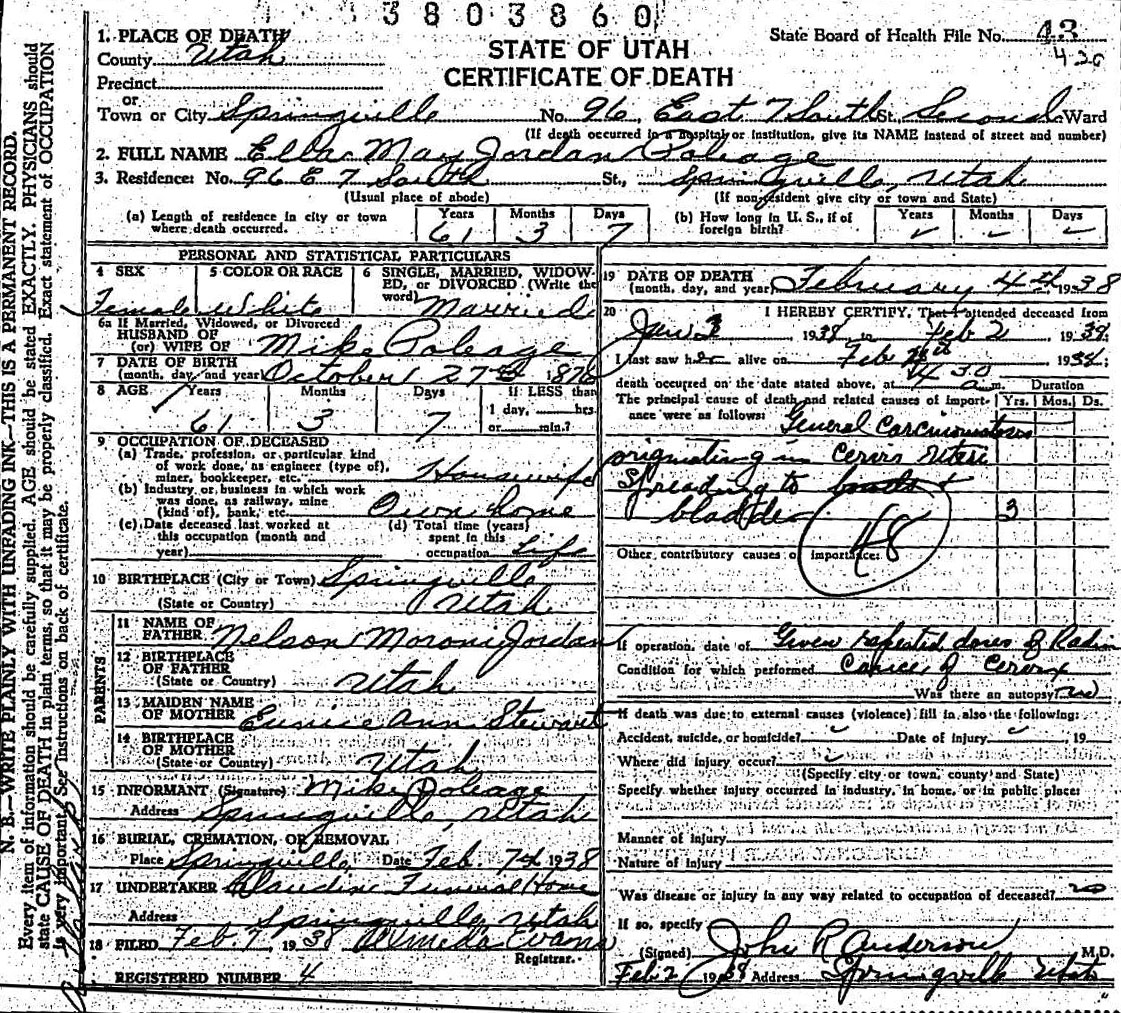 3803860
1. PLACE OF DEATH
County Utah
Precinct
or
Town or City Springville No. 96 East 7 South St. Second Ward
State Board of Health File No. 43
STATE OF UTAH
CERTIFICATE OF DEATH
(If death occurred in a hospital or institution, give its NAME instead of street and number)
2. FULL NAME Ella May Jordan Poleage
3. Residence: No. 96 E 7 South St., Springville, Utah
(Usual place of abode) (If non-resident give city or town and State)
(a) Length of residence in city or town where death occurred. Years 61 Months 3 Days 7
(b) How long in U. S., if of foreign birth? Years Months Days
PERSONAL AND STATISTICAL PARTICULARS
4 SEX Female
5 COLOR OR RACE White
6 SINGLE, MARRIED, WIDOWED, or DIVORCED (Write the word) Married
6a If Married, Widowed, or Divorced
HUSBAND OF
(or) WIFE OF Mike Poleage
7 DATE OF BIRTH
(month, day, and year) October 27 1876
8 AGE Years 61 Months 3 Days 7 If LESS than 1 day, hrs. or min.?
9 OCCUPATION OF DECEASED
(a) Trade, profession, or particular kind of work done, as engineer (type of), miner, bookkeeper, etc. Housewife
(b) Industry or business in which work was done, as railway, mine (kind of), bank, etc. Own home
(c) Date deceased last worked at this occupation (month and year)
(d) Total time (years) spent in this occupation Life
10 BIRTHPLACE (City or Town) Springville
(State or Country) Utah
PARENTS
11 NAME OF FATHER Nelson Moroni Jordan
12 BIRTHPLACE OF FATHER
(State or Country) Utah
13 MAIDEN NAME OF MOTHER Eunice Ann Stewart
14 BIRTHPLACE OF MOTHER
(State or Country) Utah
15 INFORMANT (Signature) Mike Poleage
Address Springville, Utah
16 BURIAL, CREMATION, OR REMOVAL
Place Springville Date Feb. 7th 1938
17 UNDERTAKER Funeral Home
Address Springville, Utah
18 FILED Feb. 7, 1938 Almeda Evans
Registrar.
REGISTERED NUMBER 4
19 DATE OF DEATH
(month, day, and year) February 4th 1938
20 I HEREBY CERTIFY, That I attended deceased from
Jan 3 1938 Feb 2 1938
I last saw her alive on Feb 1938
death occurred on the date stated above, at 4 30 a m.
Duration
The principal cause of death and related causes of importance were as follows: Yrs. Mos. Ds.
General Carcinomatosis
originating in Cervix Uteri
Spreading to
bladder 3
48
Other contributory causes of importance:
If operation, date of Given repeated doses of Radium
Condition for which performed Cancer of Cervix
Was there an autopsy? no
If death was due to external causes (violence) fill in also the following:
Accident, suicide, or homicide? Date of injury 19
Where did injury occur?
(Specify city or town, county and State)
Specify whether injury occurred in industry, in home, or in public place:
Manner of injury
Nature of injury
Was disease or injury in any way related to occupation of deceased? no
If so, specify
(Signed) John R Anderson M.D.
Feb 2 1938 Address Springville Utah
N. B.—WRITE PLAINLY WITH UNFADING INK—THIS IS A PERMANENT RECORD.
Every item of information should be carefully supplied. AGE should be stated EXACTLY. PHYSICIANS should
state CAUSE OF DEATH in plain terms, so that it may be properly classified. Exact statement of OCCUPATION
is very important. See instructions on back of certificate.